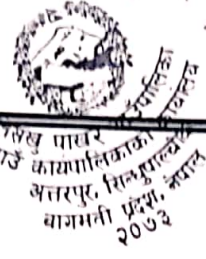 पाखर
गाउँ कार्यपालिकाको कार्यालय
अत्तरपुर, सिन्धुपाल्चोक
बागमती प्रदेश, नेपाल
२०७३